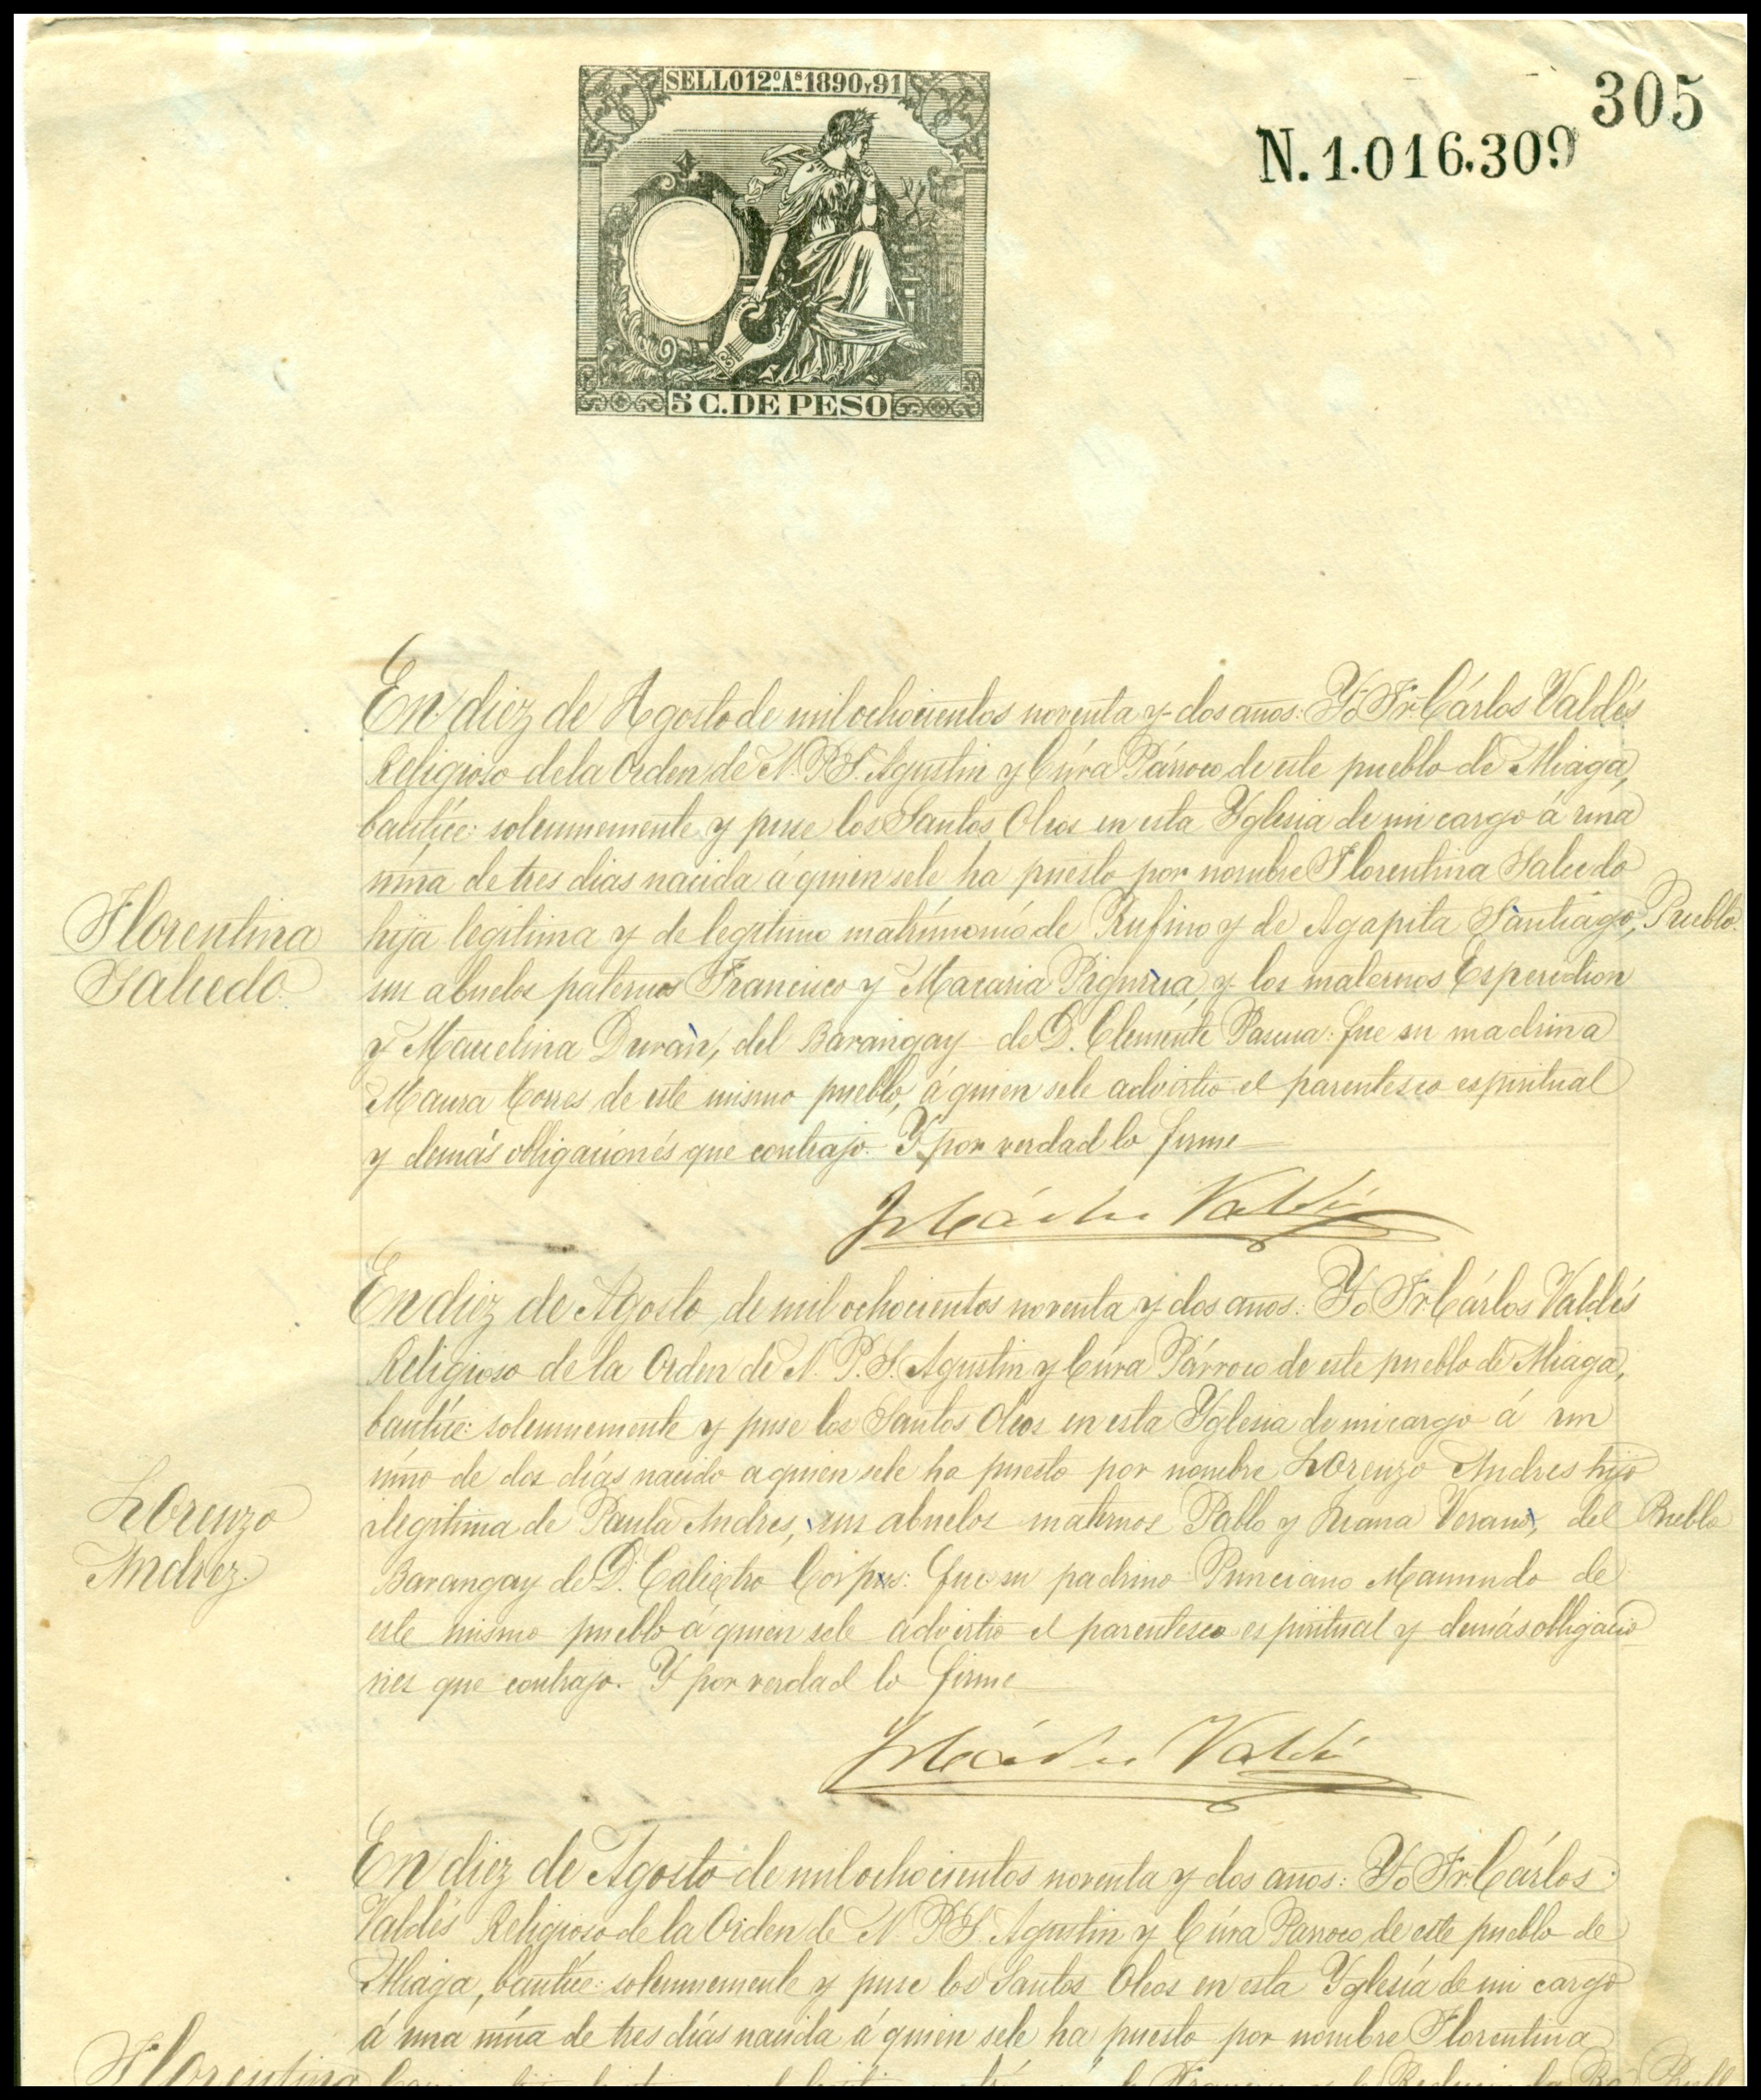 SELLO 12.º A.s 1890 y 91
5 C. DE PESO
305
N. 1.016.309
En diez de Agosto de mil ochocientos noventa y dos años: Yo Fr. Cárlos Valdés
Religioso de la Orden de N. P. S. Agustin y Cúra Párroco de este pueblo de Miagá,
bautice: solemnemente y puse los Santos Oleos en esta Yglesia de mi cargo á una
niña de tres dias nacida á quien se le ha puesto por nombre Florentina Salcedo
Florentina
Salcedo.
hija legitima y de legitimo matrimonio de Rufino y de Agapita Santiago, Pueblo.
sus abuelos paternos Francisco y Macaria y los maternos Esperidion
y Marcelina Durán, del Barangay de D. Clemente Pascua: fue su madrina
Maura Torres de este mismo pueblo, á quien se le advirtio el parentesco espiritual
y demás obligaciónes que contrajo. Y por verdad lo firme
Fr. Cárlos Valdés
En diez de Agosto de mil ochocientos noventa y dos años: Yo Fr. Cárlos Valdés
Religioso de la Orden de N. P. S. Agustin y Cúra Párroco de este pueblo de Miagá,
bautíce: solemnemente y puse los Santos Oleos en esta Yglesia de mi cargo á un
niño de dos días nacido a quien se le ha puesto por nombre Lorenzo Andres hijo
Lorenzo
Andrez.
ilegitima de Paula Andres, sus abuelos maternos Pablo y Juana Verano, del Pueblo
Barangay de D. Calixtro Corpus: fue su padrino Punciano Mamundo de
este mismo pueblo á quien se le advirtio el parentesco espiritual y demás obligacio
nes que contrajo. Y por verdad lo firme
Fr. Cárlos Valdés
En diez de Agosto de mil ochocientos noventa y dos años: Yo Fr. Cárlos
Valdés Religioso de la Orden de N. P. S. Agustin y Cúra Parroco de este pueblo de
Miaga, bautíce: solemnemente y puse los Santos Oleos en esta Yglesía de mi cargo
á una niña de tres días nacida á quien se le ha puesto por nombre Florentina
Florentina